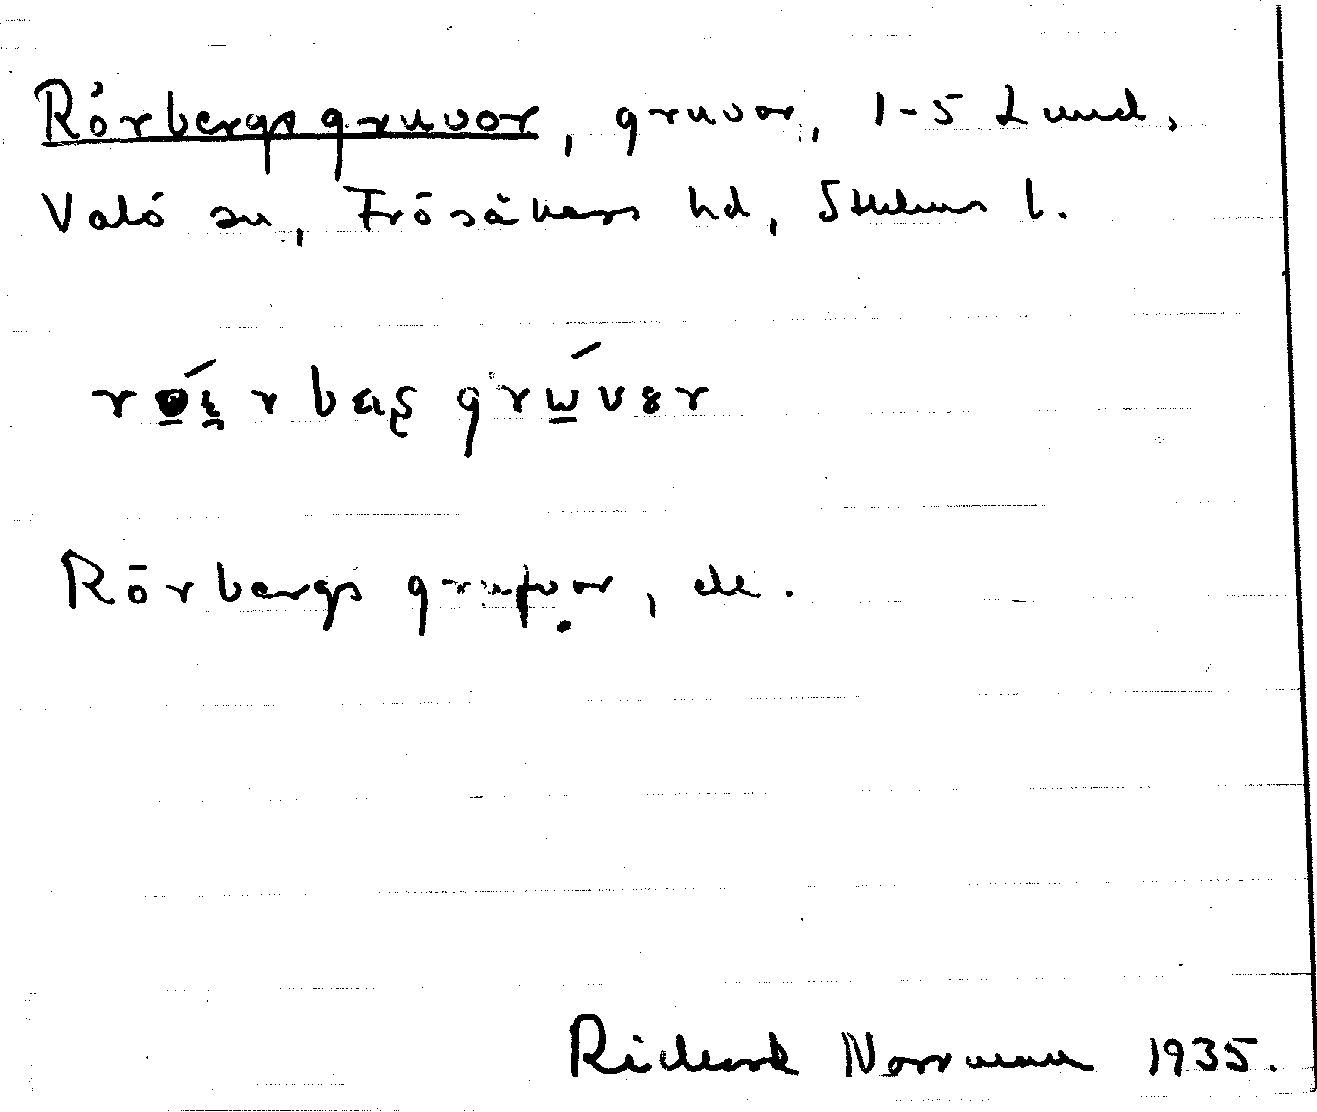 Rörbergsgruvor, gruvor, 1-5 Lund,
Valö sn, Frösåkers hd, Sthlms l.
Rörbergs grufvor, ek.
Rickard Norrman 1935.